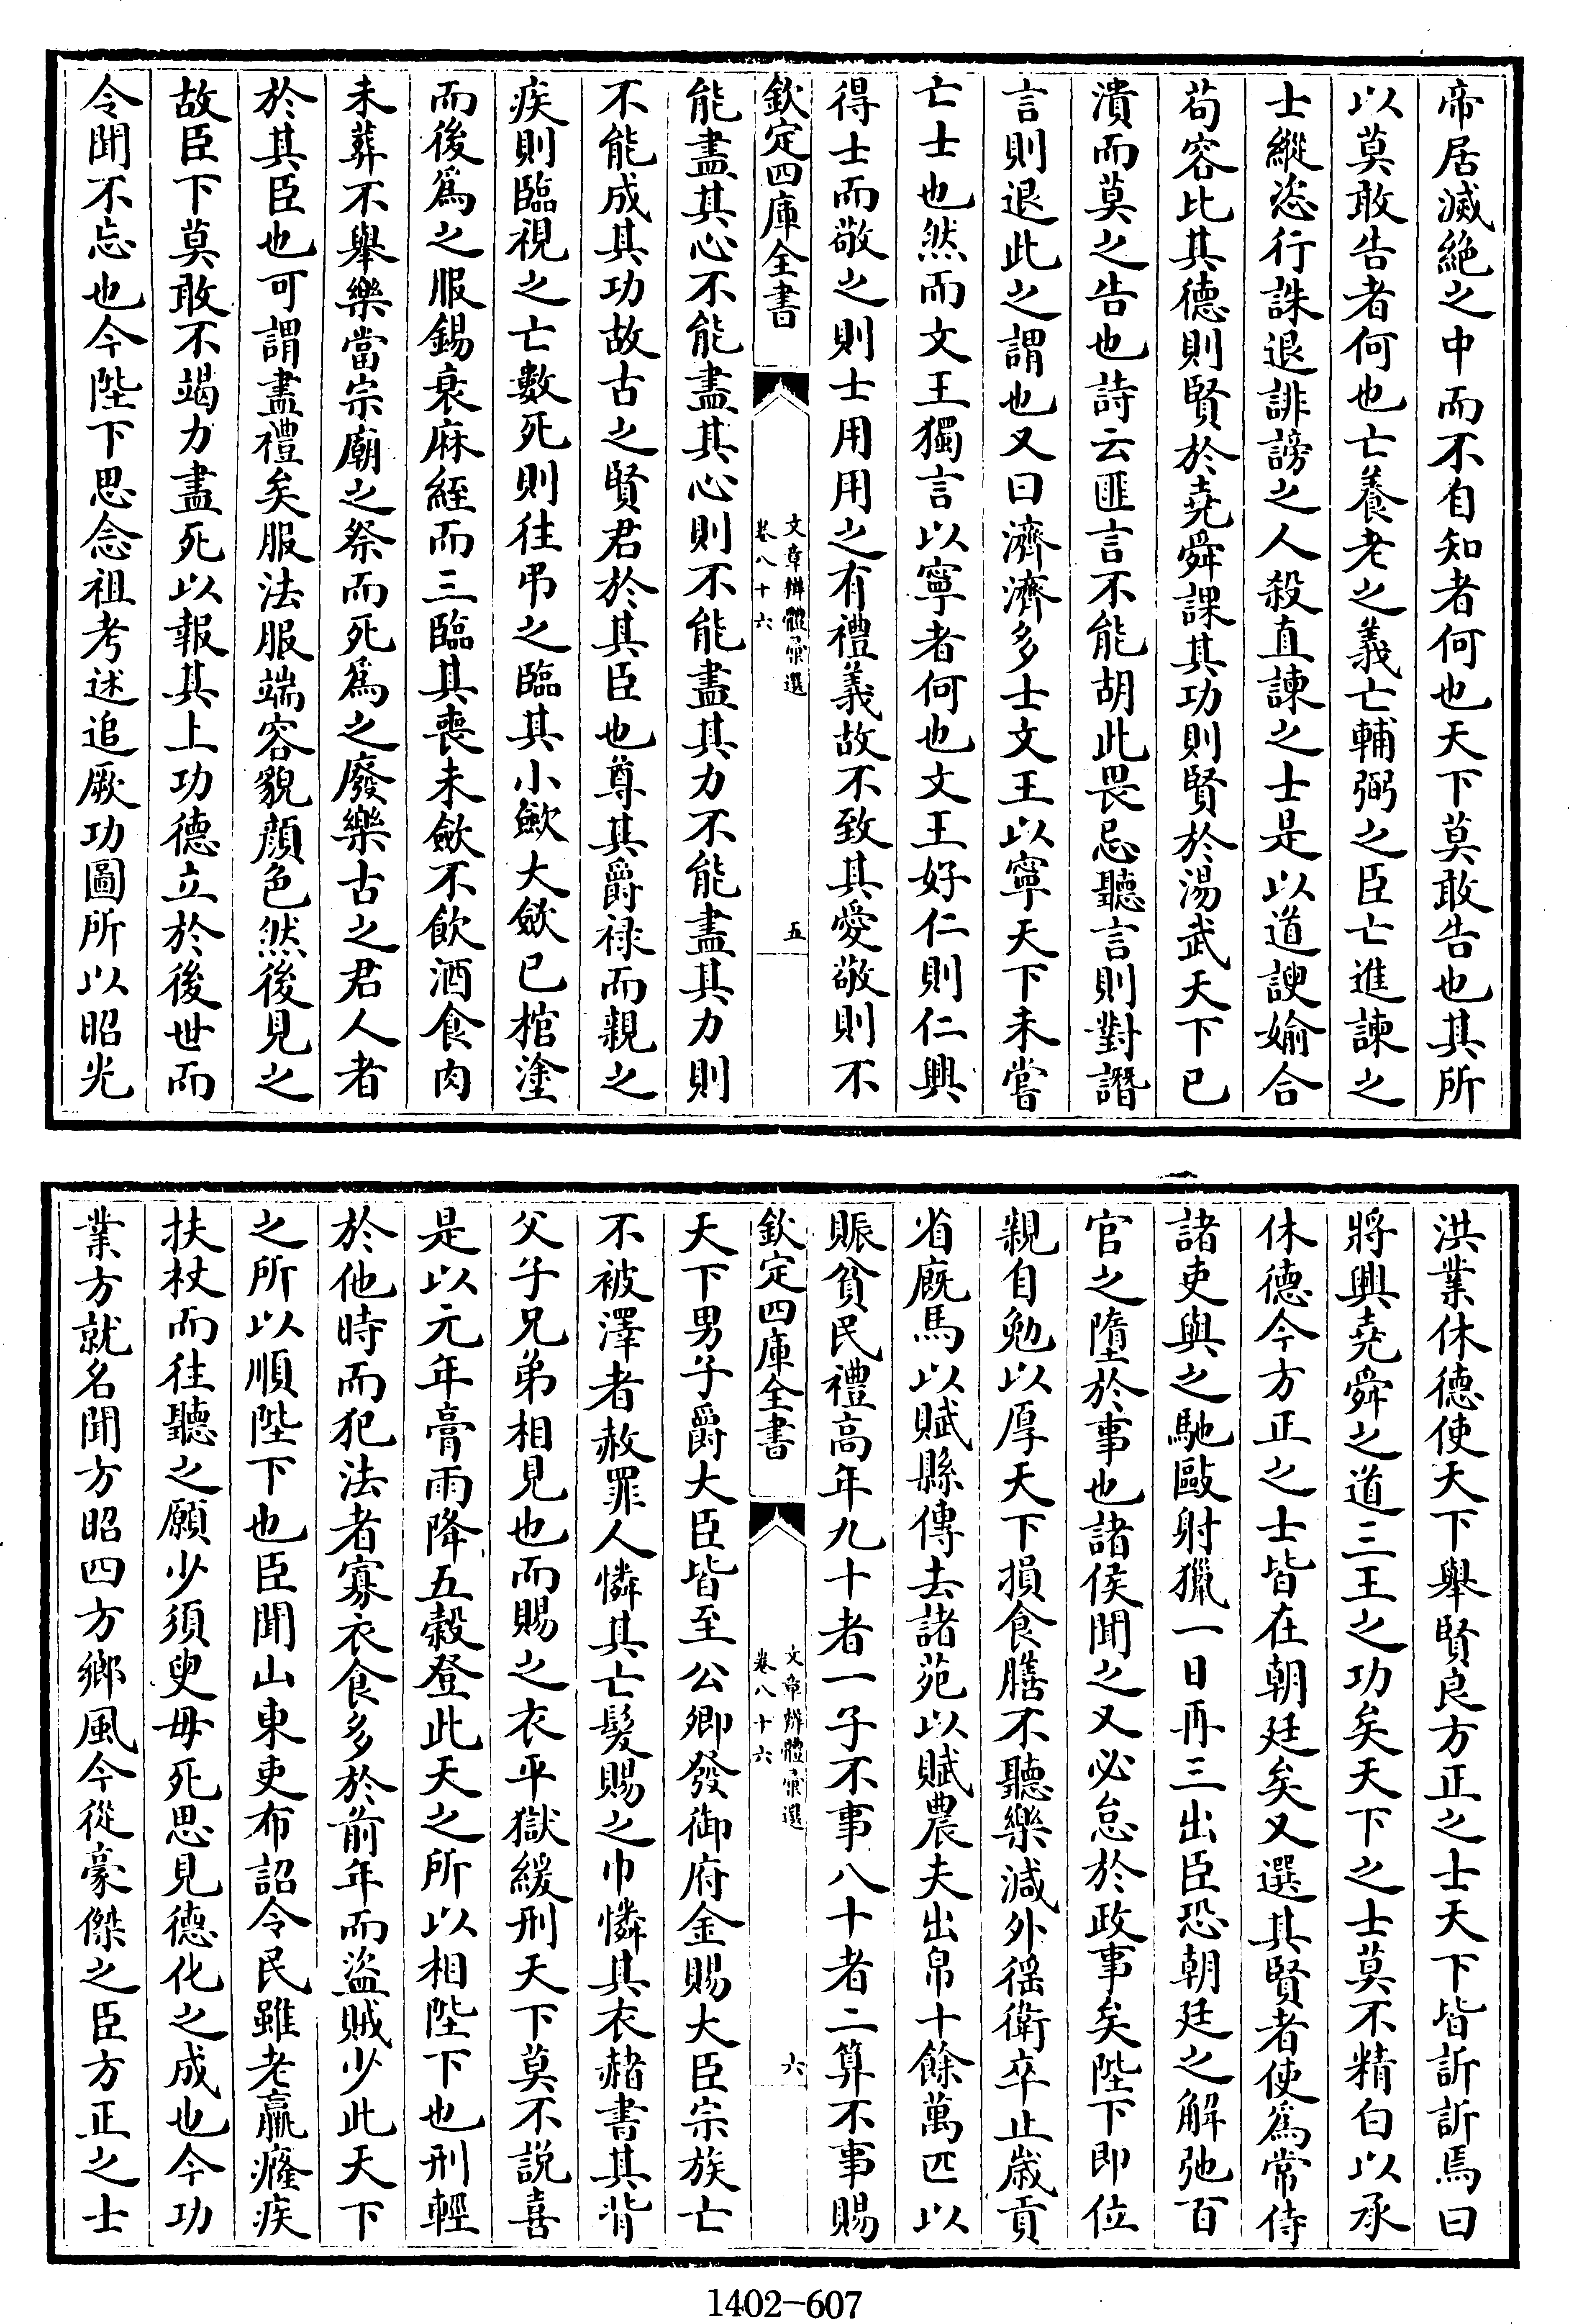 帝居滅絶之中而不自知者何也天下莫敢告也其所
以莫敢告者何也亡養老之義亡輔弼之臣亡進諫之
士縱恣行誅退誹謗之人殺直諫之士是以道諛媮合
苟容比其德則賢於堯舜課其功則賢於湯武天下已
潰而莫之告也詩云匪言不能胡此畏忌聽言則對譖
言則退此之謂也又曰濟濟多士文王以寧天下未嘗
亡士也然而文王獨言以寧者何也文王好仁則仁興
得士而敬之則士用用之有禮義故不致其愛敬則不
欽定四庫全書
文章辨體彙選
卷八十六
五
能盡其心不能盡其心則不能盡其力不能盡其力則
不能成其功故古之賢君於其臣也尊其爵祿而親之
疾則臨視之亡數死則往弔之臨其小斂大斂已棺塗
而後爲之服錫衰麻絰而三臨其喪未斂不飲酒食肉
未葬不舉樂當宗廟之祭而死爲之廢樂古之君人者
於其臣也可謂盡禮矣服法服端容貌顔色然後見之
故臣下莫敢不竭力盡死以報其上功德立於後世而
令聞不忘也今陛下思念祖考述追厥功圖所以昭光
洪業休德使天下舉賢良方正之士天下皆訢訢焉曰
將興堯舜之道三王之功矣天下之士莫不精白以承
休德今方正之士皆在朝廷矣又選其賢者使爲常侍
諸吏與之馳敺射獵一日再三出臣恐朝廷之解弛百
官之墮於事也諸侯聞之又必怠於政事矣陛下即位
親自勉以厚天下損食膳不聽樂減外徭衛卒止歲貢
省廐馬以賦縣傳去諸苑以賦農夫出帛十餘萬匹以
賑貧民禮高年九十者一子不事八十者二算不事賜
欽定四庫全書
文章辨體彙選
卷八十六
六
天下男子爵大臣皆至公卿發御府金賜大臣宗族亡
不被澤者赦罪人憐其亡髮賜之巾憐其衣赭書其背
父子兄弟相見也而賜之衣平獄緩刑天下莫不説喜
是以元年膏雨降五穀登此天之所以相陛下也刑輕
於他時而犯法者寡衣食多於前年而盜賊少此天下
之所以順陛下也臣聞山東吏布詔令民雖老羸癃疾
扶杖而往聽之願少須臾毋死思見德化之成也今功
業方就名聞方昭四方鄉風今從豪傑之臣方正之士
1402-607